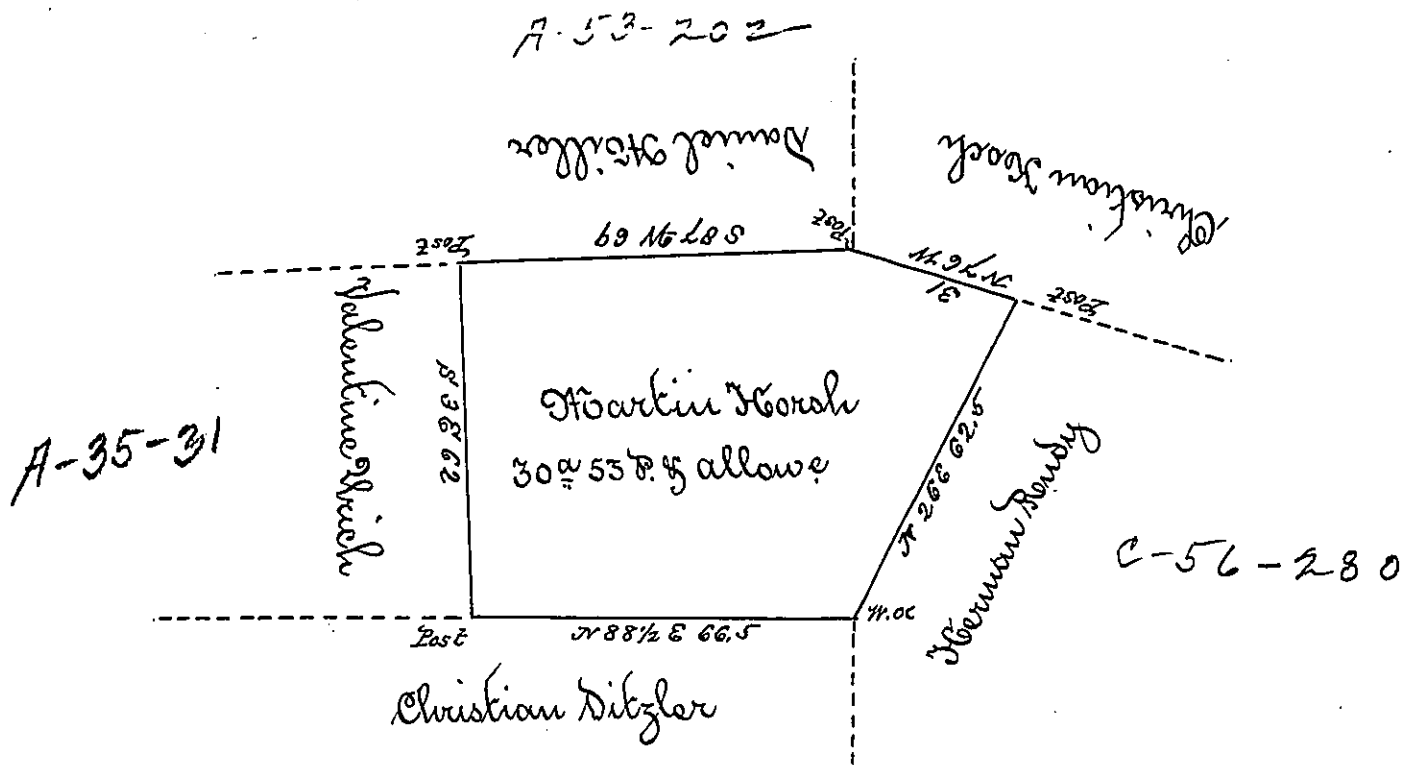 A-53-202
Daniel Miller
Christian Koch
Post
S 87 W 69
Post
N 76 W
31
Post
Valentine Urich
S 3 E 62
Martin Horsh
30a 53 P. & allowe
N 26 E 62.5
Herman Rendy
A-35-31
C-56-280
Post
N 88 1/2 E 66.5
W.OC
Christian Ditzler